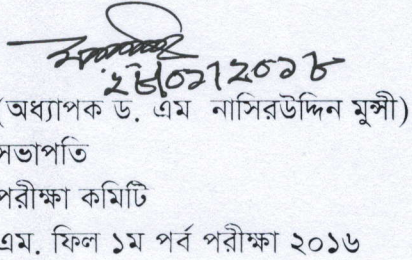 (অধ্যাপক ড. এম নাসিরউদ্দিন মুন্সী)
সভাপতি
পরীক্ষা কমিটি
এম. ফিল ১ম পর্ব পরীক্ষা ২০১৬